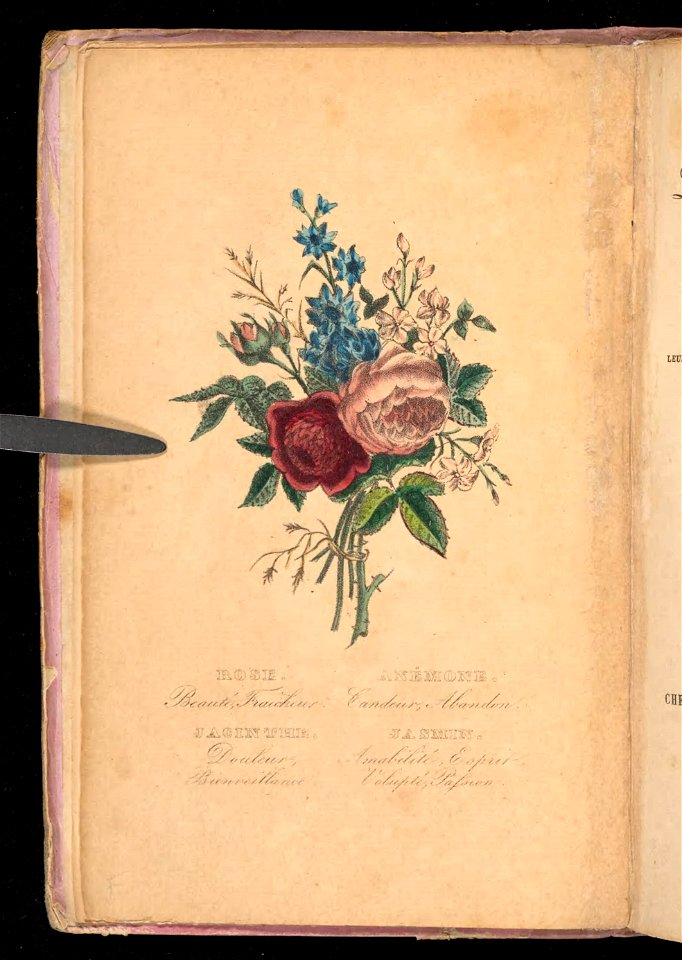 ROSE.
Beauté, Fraicheur.
JACINTHE.
Douleur,
Bienveillance
ANÉMONE.
Candeur, Abandon.
JASMIN.
Amabilité, Esprit
Volupté, Paſsion.